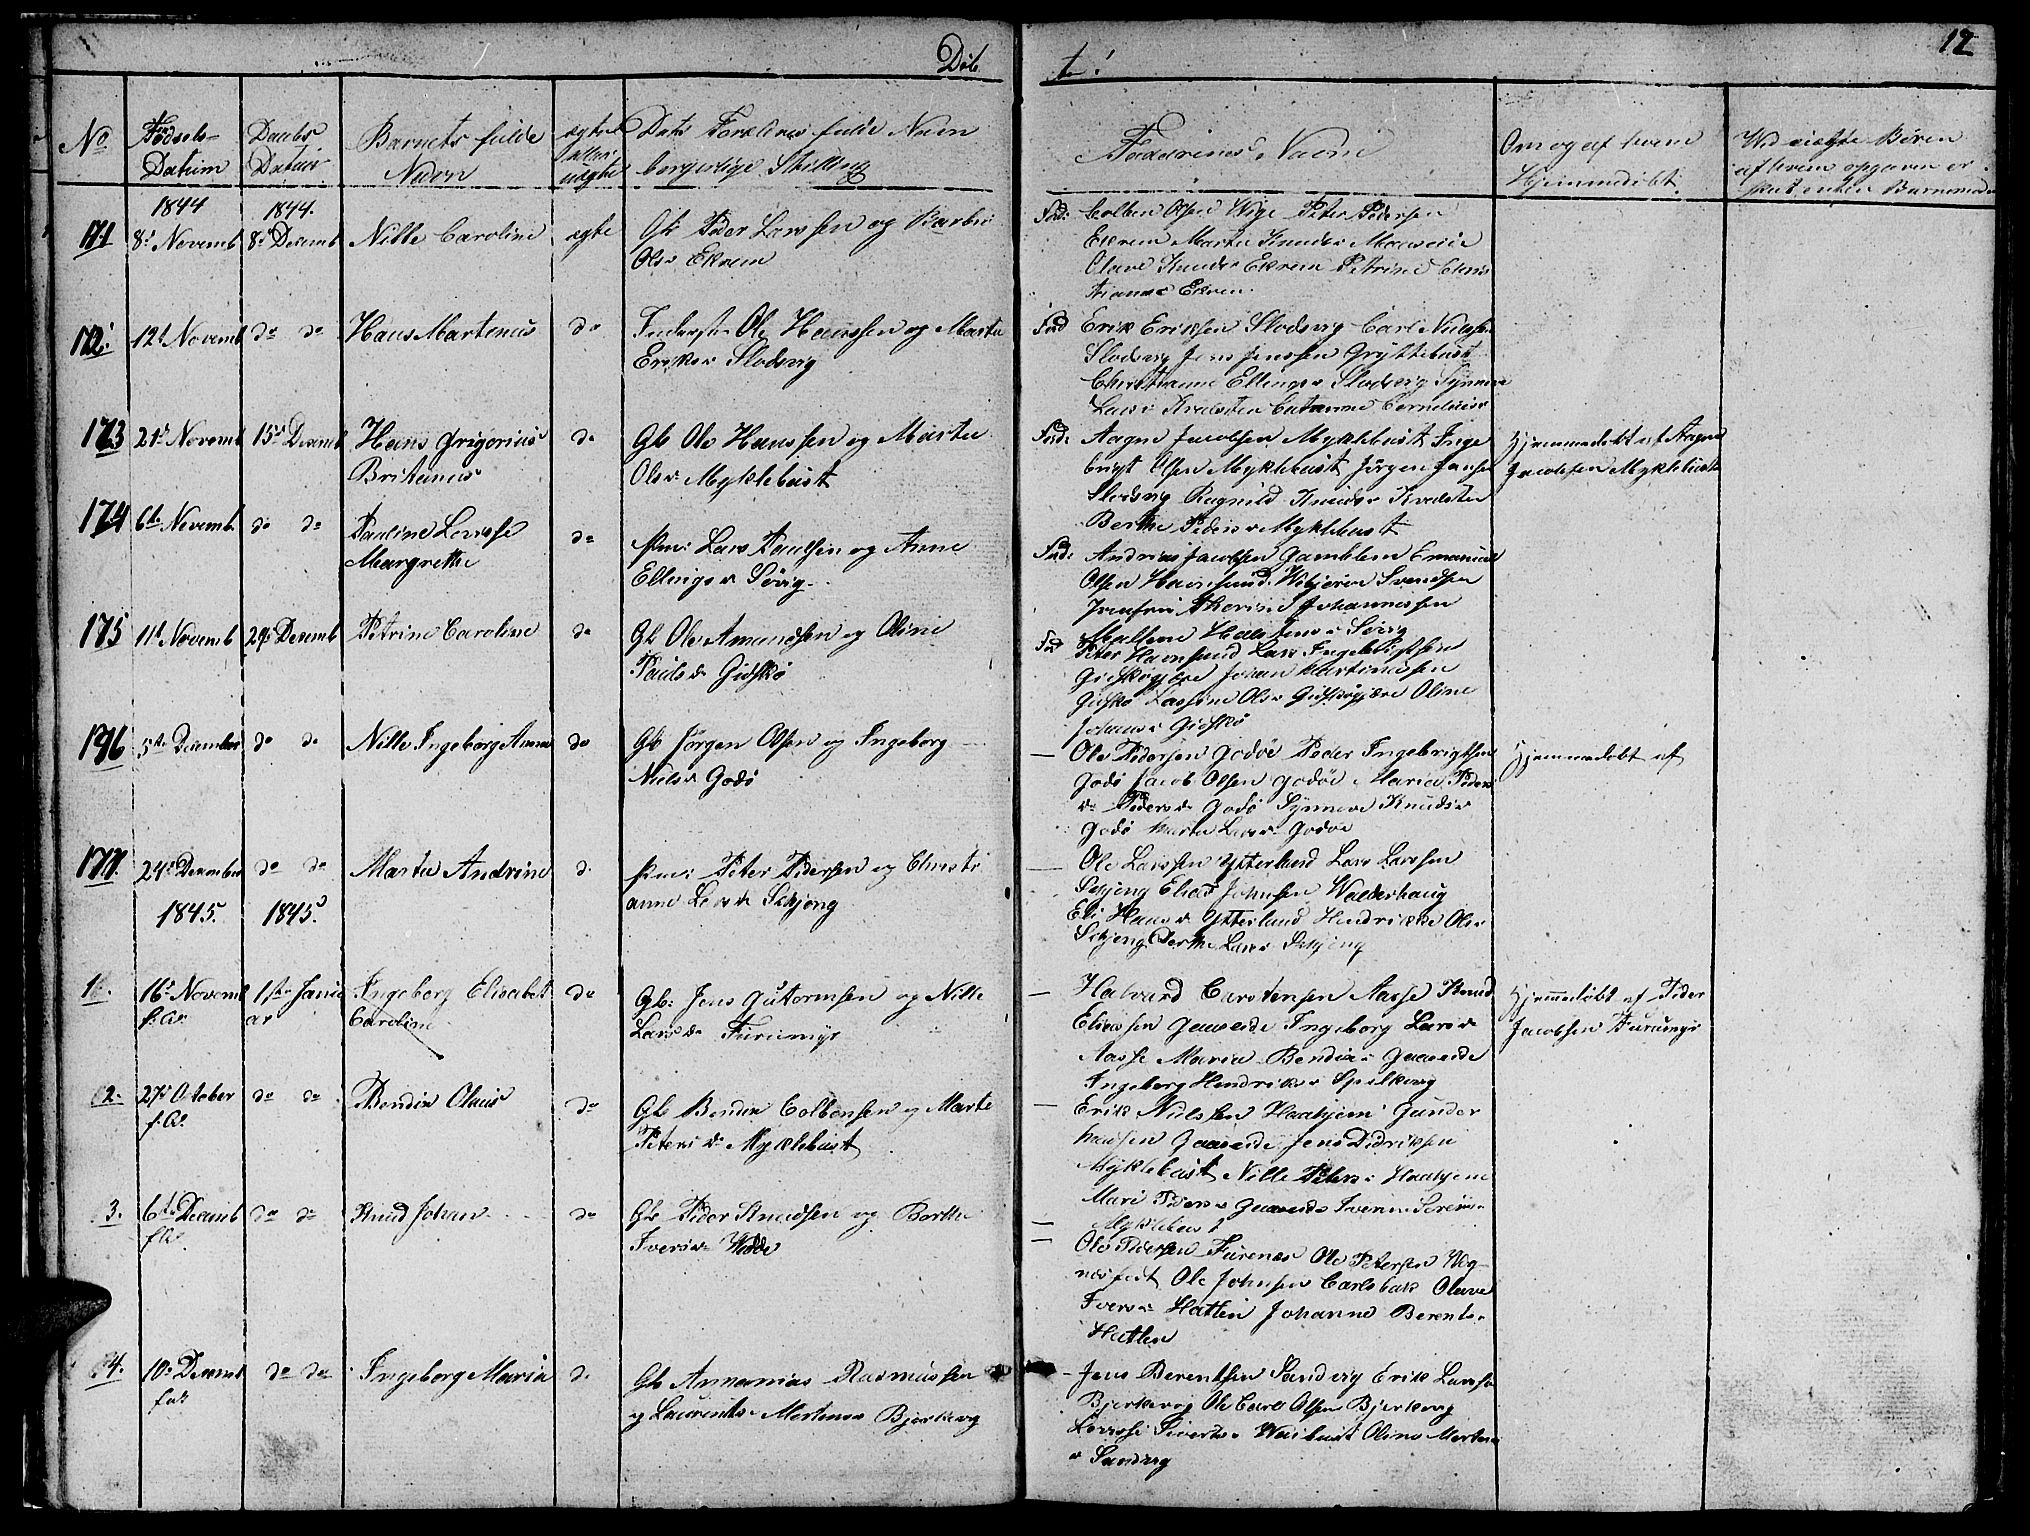 Døb
te!
12
No
Fødsels-
Datum
Daabs
Datum
Barnets fulde
Navn
ægte
eller
uægte
Dets Forældres fulde Navn
borgerlige Stilling
Faddernes Navne
Om og af hvem
Hjemmedøbt
Ved uægte Børn
af hvem opgaven er
1844
1844.
171
8de Novemb
8de Decemb
Nille Caroline
ægte
Gb Peder Larssen og Barbro
Olsd Ekrem
Fad: Colben Olsen Wige Peter Pedersen
Ekrem Marte Knudsd Mauseid
Olave Knudsd Ekrem Petrine Chris
tiansd Ekrem
172.
12te Novemb
do do
Hans Martenus
do
Inderster Ole Hanssen og Marte
Eriksd Slodsvig
Fad Erik Erikssen Slodsvig Carl Nielssen
Slodsvig Jens Jenssen Gryttebust
Christianne Ellingsd Slodsvig Synneve
Larsd Cornelius
173
21de Novemb
15de Decemb
Hans Grigorius
Britanus
do
Gb Ole Hanssen og Marte
Olsd Myklebust
Fad: Aagne Jacobsen Myklebust Inge
brigt Olsen Myklebust Jørgen Jansen
Slodsvig Ragnild Knudsd
Berthe Pedersd Myklebust
Hjemmedøbt af Aagne
Jacobsen Myklebust
174
6te Novemb.
do do
Pauline Lovise
Margrethe
do
Lars Paulsen og Anne
Ellingsd Søvig
Fad: Andreas Jacobsen Gamblem Emanuel
Olsen Havnsund Svendsen
Johannessen
Søvig
175
11te Novemb
29de Decemb
Petrine Caroline
do
Gb Ole Amundsen og Oline
Paulsd Gidskø
Fad Peter Havnsund Lars Ingebrigtsen
Gidskøgjære Johan Martinussen
Gidskø Olsd Gidskøgjære Oline
Johansd Gidskø
176
5te December
do do
Nille Ingeborg Anna
do
Gb Jørgen Olsen og Ingeborg
Nielsd Godø
— Ole Pedersen Godøe Peder Ingebrigtsen
Godø Jacob Olsen Godøe Maria Peders
d Pedersd Godø Synneve Knudsd
Godø Marte Larsd Godøe
Hjemmedøbt af
177.
24de December
do do
Marta Andrine
do
Peter Pedersen og Christi
anne Larsd Schjong
— Ole Larssen Ytterland Lars Larssen
Schjong Elias Johnsen Walderhaug
Eli Hansd Ytterland Hendrikke Olsd
Schjong Berthe Larsd Schjong
1845.
1845.
1.
16de Novemb
f: A:
1ste Janu
ar
Ingeborg Elisabet
Caroline
do
Gb: Jens Guttormsen og Nille
Larsd Furumyr
— Halvard Carstensen Aasse Knud
Eliassen Gaaseide Ingeborg Larsd
Aasse Maria Bendixd Gaaseide
Ingeborg Hendriksd Spilkevig
Hjemmedøbt af Peder
Jacobsen Furumyr
2.
27de October
f: A:
do do
Bendix Olaus
do
Gb Bendix Colbensen og Marte
Petersd Myklebust
— Erik Nielssen Haahjem Gunder
Hansen Gaaseide Jens Didriksen
Myklebust Nille Petersd Haahjem
Mari Pedersd Gaaseide Iverine Sørensd
— Myklebust
3.
6te Decemb
f: A:
do do
Knud Johan
do
Gb Peder Knudsen og Berthe
Iversd
— Ole Pedersen Furenæs Ole Petersen Nog-
Ole Johnsen Carlsbak Olave
Iversd Hatlen Johanne Berentsd
Hatlen
4.
10de Decemb
do do
Ingeborg Maria
do
Gb Annanias Rasmussen
og Laurentse Mortensd Bjørkevig
— Jens Berentsen Sandvig Erik Larssen
Bjørkevig Ole Carl Olsen Bjørkevig
Lovise Sivertsd Oline Mortens
d Sandvig